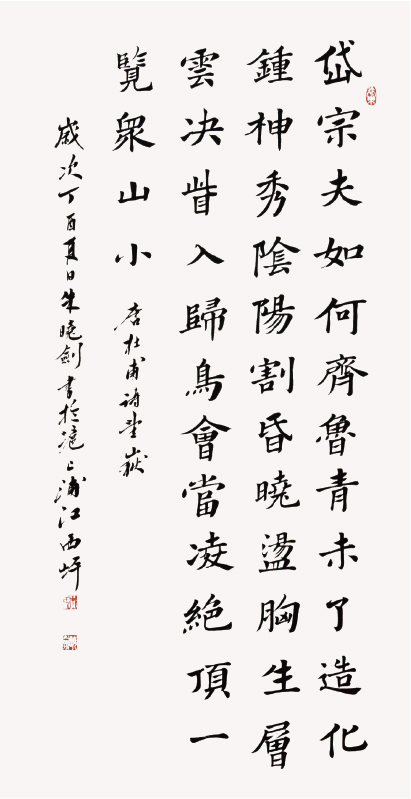 岱宗夫如何齊魯青未了造化
鍾神秀陰陽割昏曉盪胸生層
雲决眥入歸鳥會當凌絶頂一
覽眾山小 唐杜甫詩望嶽
歲次丁酉夏日朱曉劍書於滬上浦江西坪